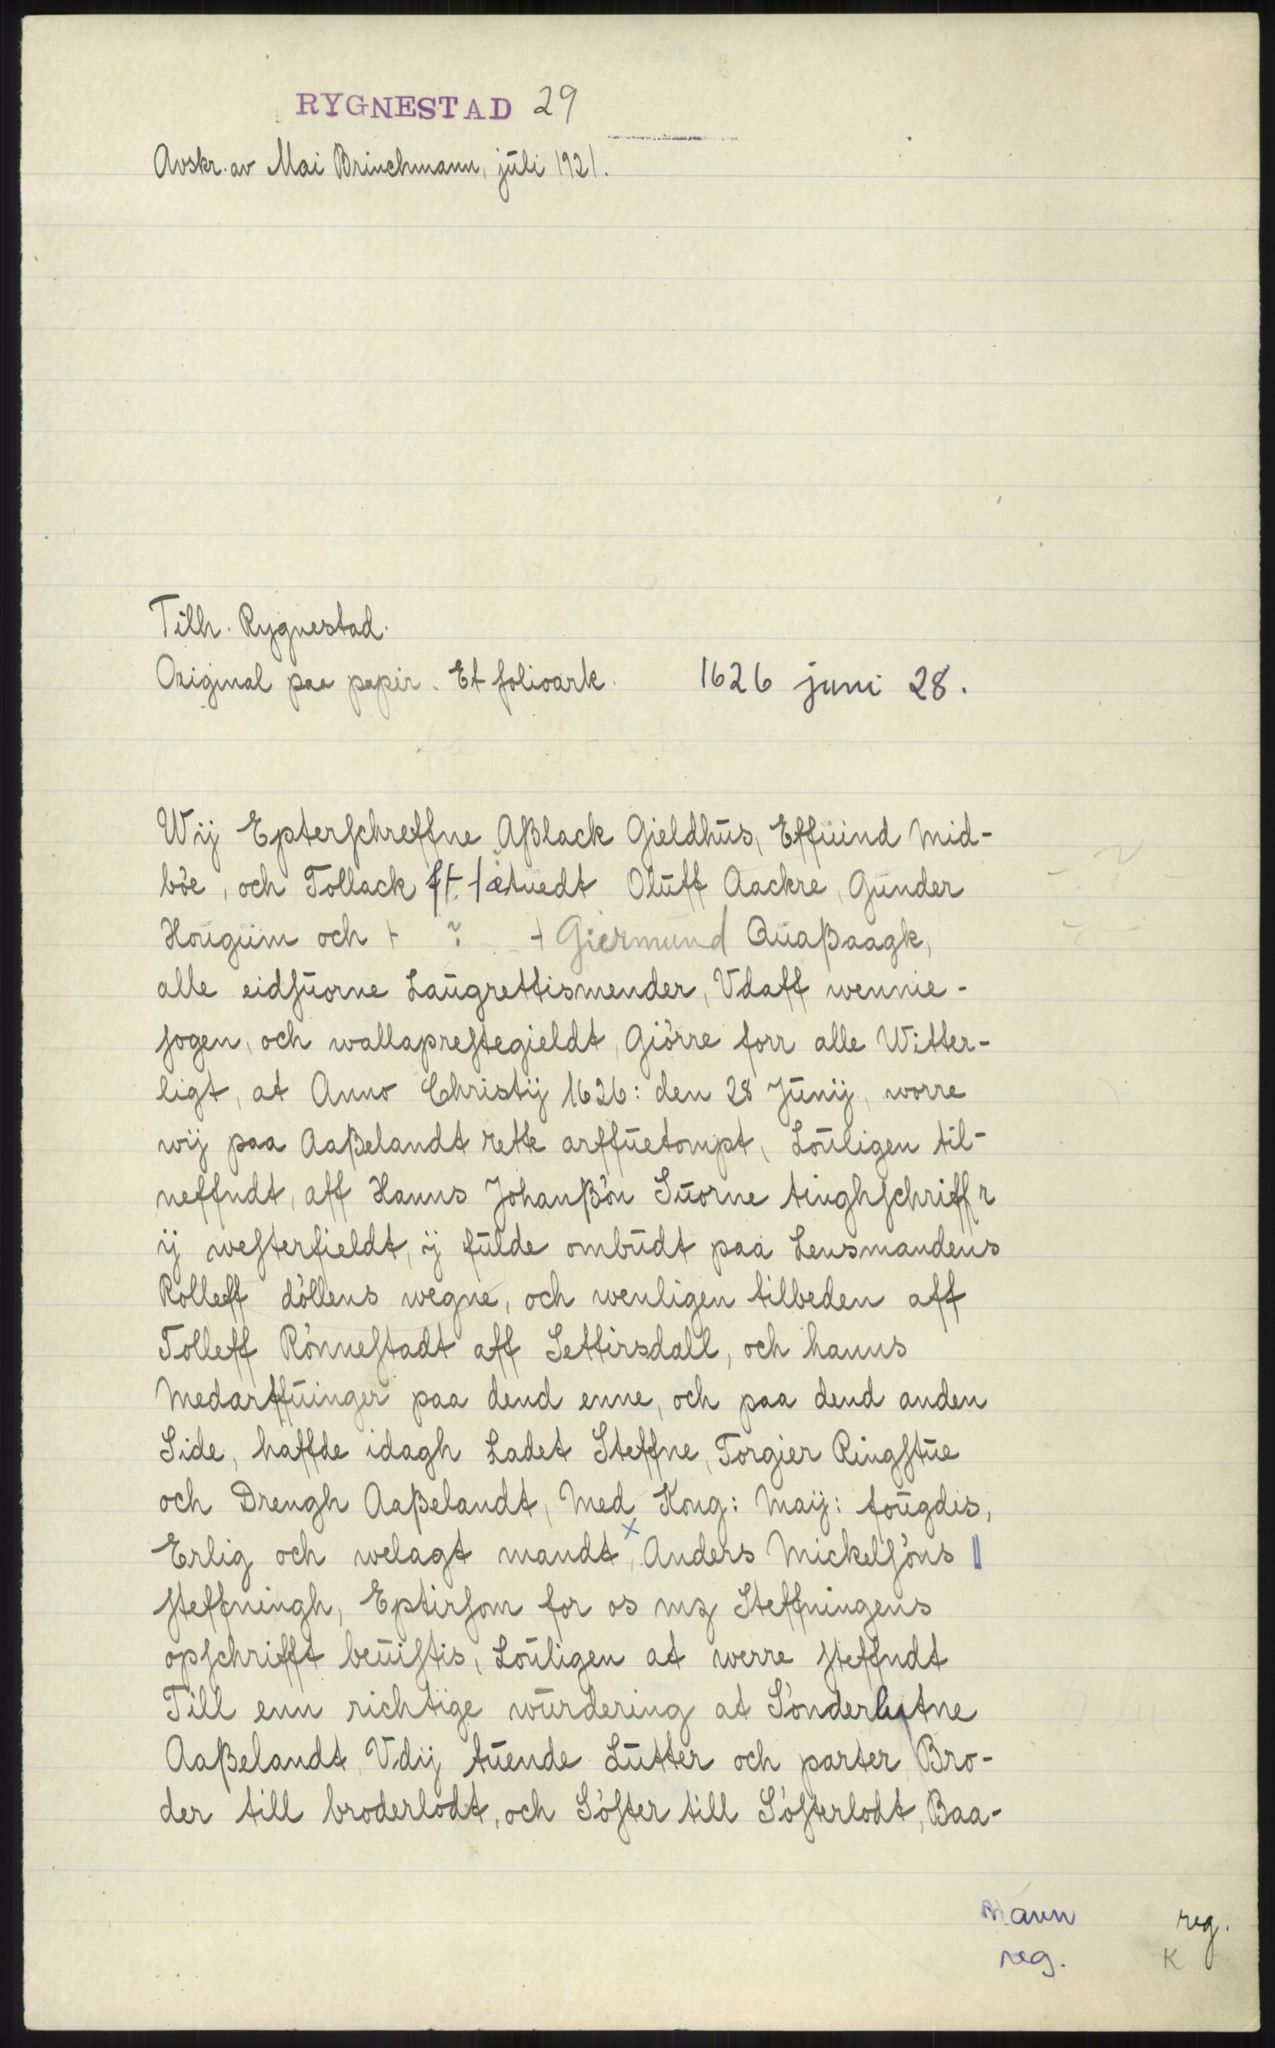 RYGNESTAD 29
Avskr. av Mai Brinchmann, juli 1921.
Tilh. Rygnestad.
Original paa papir. Et folioark. 1626 juni 28.
Wij Epterſchreffne Aßlack Gieldhus, Effuind Mid-
böe, och Tollack ſætuedt Oluff Aackre, Gunder
Hougum och + ? + Giermund Quaßaagk,
alle eidſuorne Laugrettismender, Vdaff wennie-
ſogen, och wallapreſtegieldt, Giörre forr alle Witter-
ligt, at Anno Christij 1626: den 28 Junij, worre
wij paa Aaßelandt rette arffuetompt, Louligen til-
neffndt, aff Hanns Johanßön Suorne tinghſchriffr
ij weſterfieldt, ij fulde ombudt paa Lensmandens
Rolleff döllens wegne, och wenligen tilbeden aff
Tolleff Rönneſtadt aff Settirsdall, och hanns
Medarffuinger paa dend enne, och paa dend anden
Side, haffde idagh Ladet Steffne, Torgier Ringſtue
och Drengh Aaßelandt, Med Kong: Maij: fougdis,
Erlig och welagt mandt, x Anders Mickelſöns ||
ſteffningh, Eptirſom for os mz Steffningens
opſchrifft beuiſtis, Louligen at werre ſteffndt
Till enn richtige wurdering at Sönderlutne
Aaßelandt Vdij tuende Lutter och parter, Bro-
der till broderlodt, och Söſter till Söſterlodt, Baa-
navn reg.
reg. K